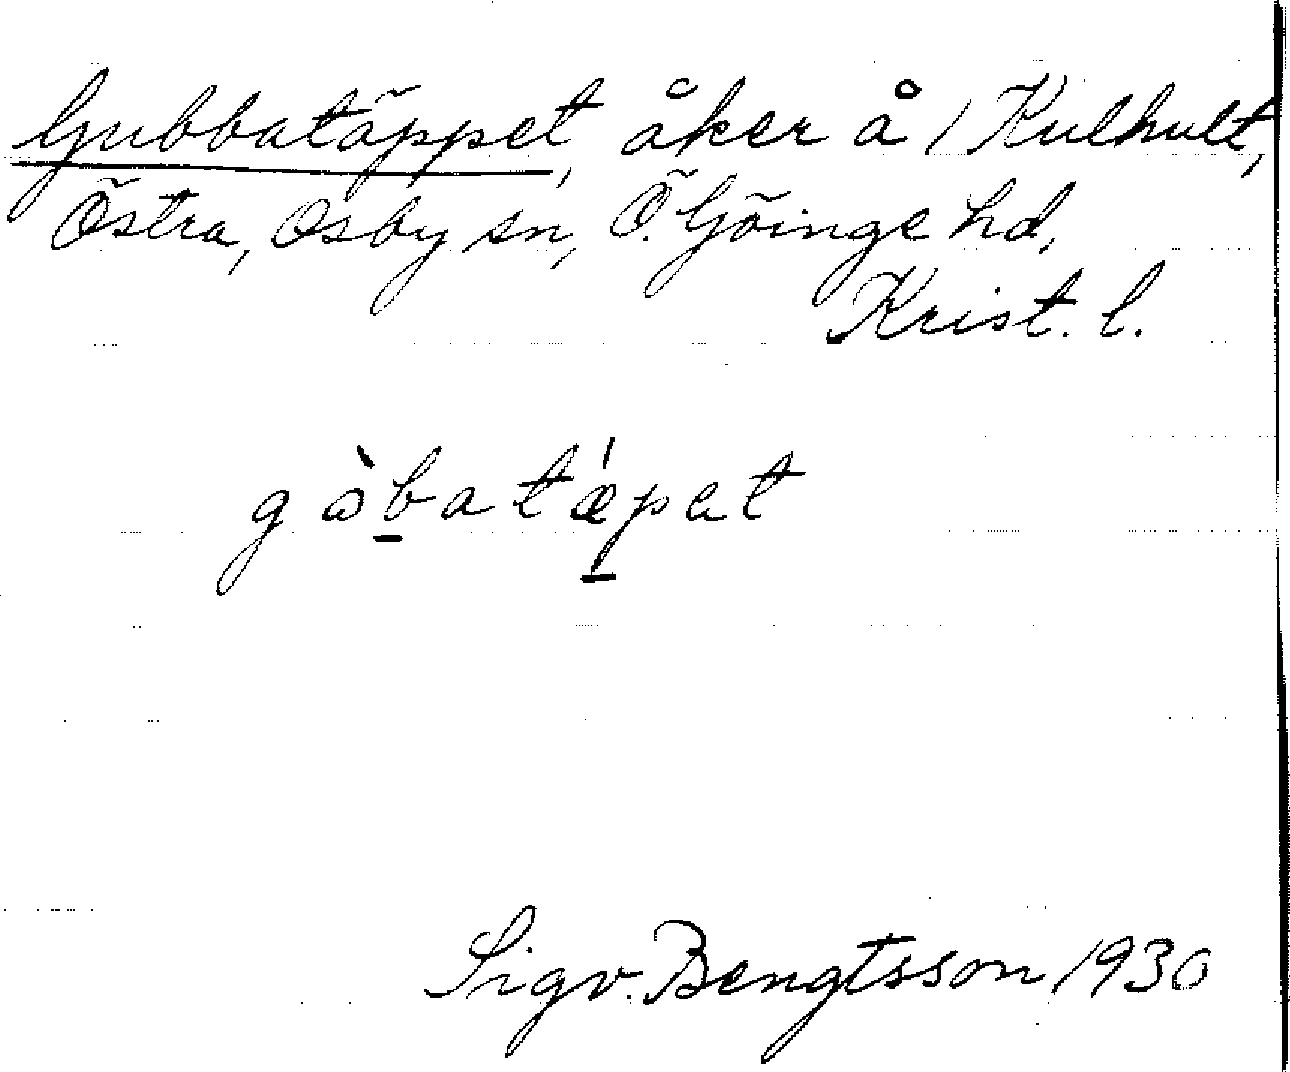 Gubbatäppet, åker å 1 Kulhult,
Östra, Osby sn, Ö. Göinge hd,
Krist. l.
gɔ̀b̲atǽp̲at
Sigv. Bengtsson 1930